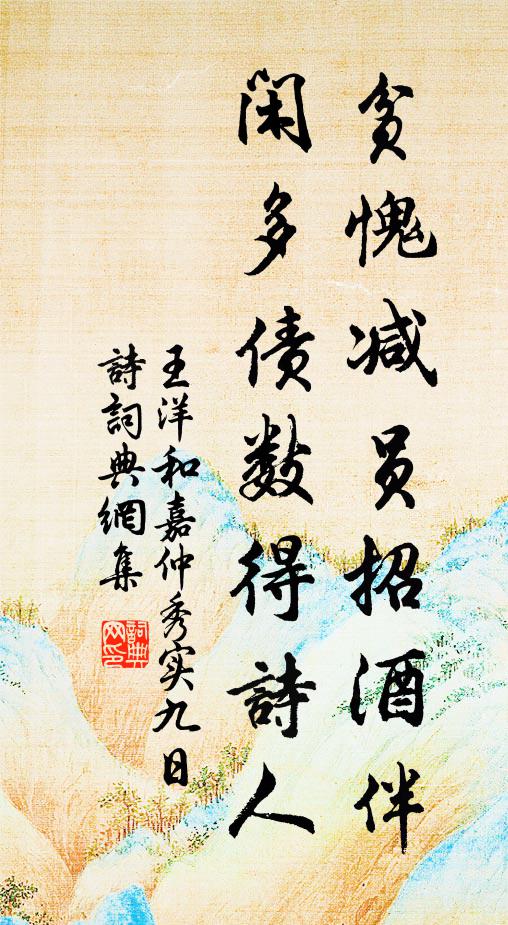 貧愧减员招酒伴
閑多债数得詩人
王洋和嘉仲秀实九日
詩詞典網集
詞典
网印